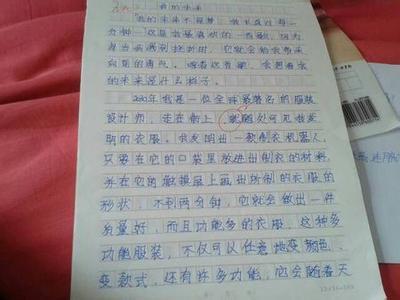 我的未来
“我的未来不是梦，我认真过每一
分钟”这是我最喜欢的一首歌，因为
每当我遇到挫折时，它就会给我带来
向前的勇气。听着这首歌，我想着我
的未来是什么样子。
我是一位全球最著名的服装
设计师，走在街上，就随处可见我发
明的衣服。我发明出一款制衣机器人，
只要在它的口袋里放进出制衣的材料，
并在它的触摸屏上画出所制的衣服的
形状，不到两分钟，它就会做出一件
质量好，而且功能多的衣服。这种多
功能服装，不仅可以任意地变颜色、
变款式，还有许多功能，它会随着天